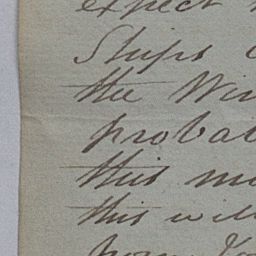 expect
Ships
the Win
probab
this mo
this will
from Yo